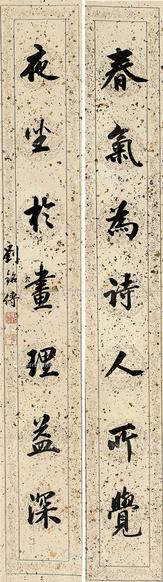 春氣為詩人所覺
夜坐於畫理益深
劉銘傳